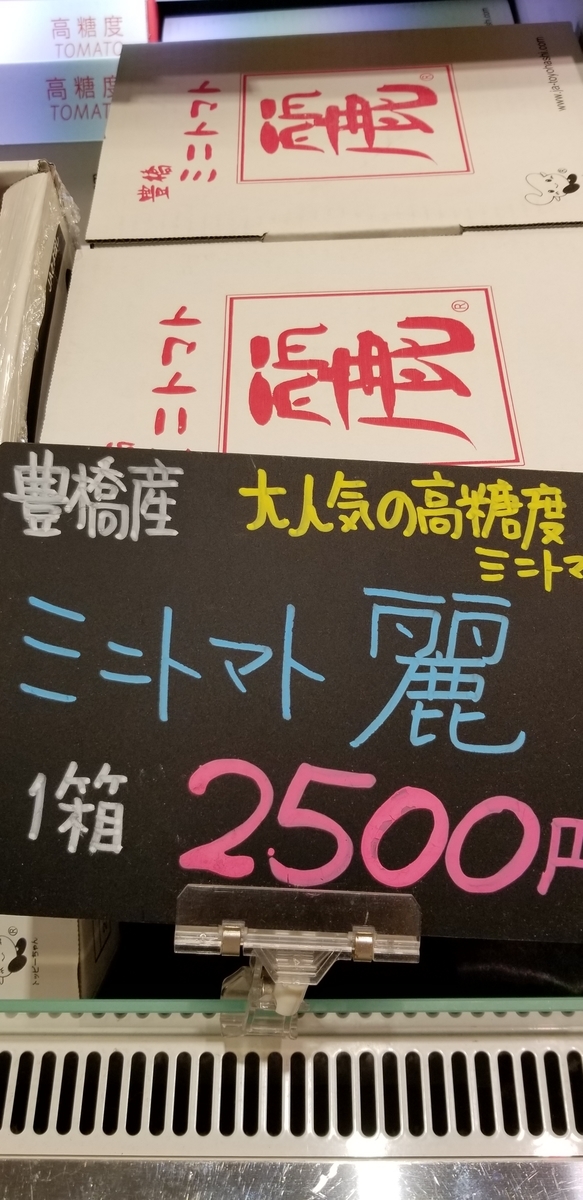 高糖度
TOMATO
高糖度
TOMATO
www.ja-toyohashi.com
麗®
ミニトマト
豊橋
麗®
ミニトマト
豊橋産
大人気の高糖度
ミニトマ
ミニトマト 麗
1箱 2,500円